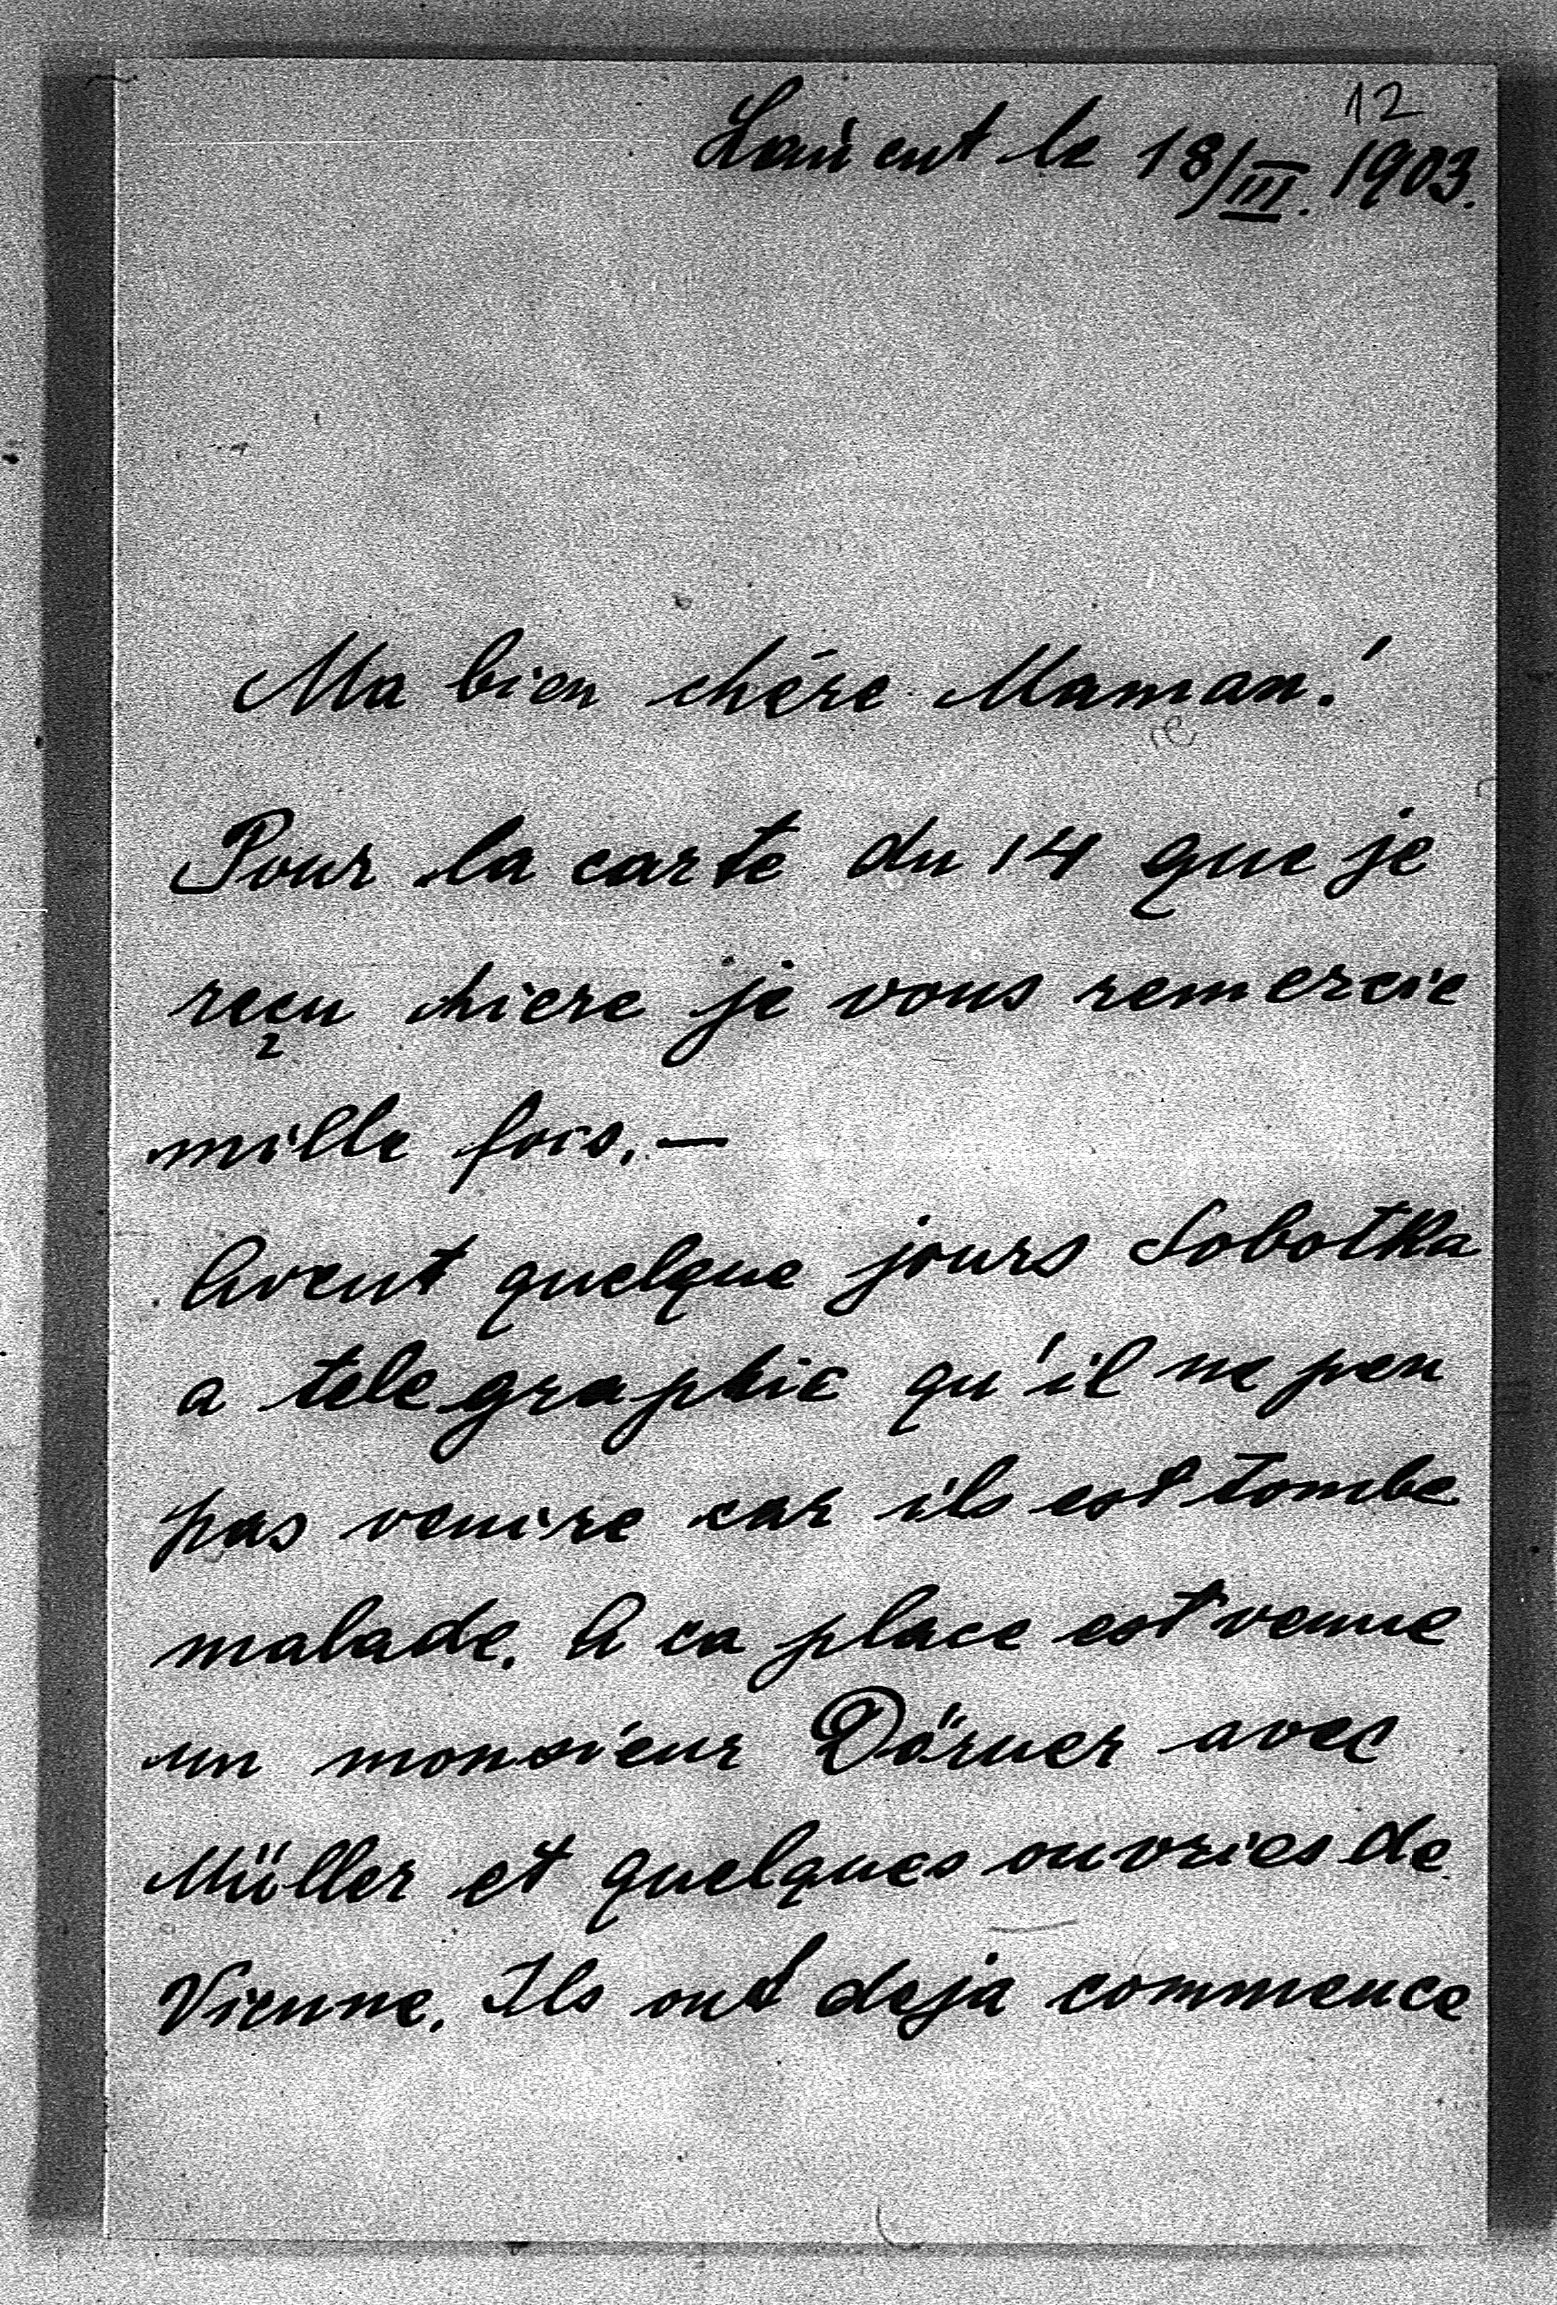 12
Lańcut le 18/III. 1903.
Ma bien chére Maman!
Pour la carte du 14 que je
reçu hiere je vous remercie
mille fois. —
Avent quelque jours Sobotka
a telegraphie qu'il ne peu
pas venire car ils est tombe
malade. A ca place est venue
un monsieur Dörner avec
Müller et quelques ouvries de
Vienne. Ils ont deja commence